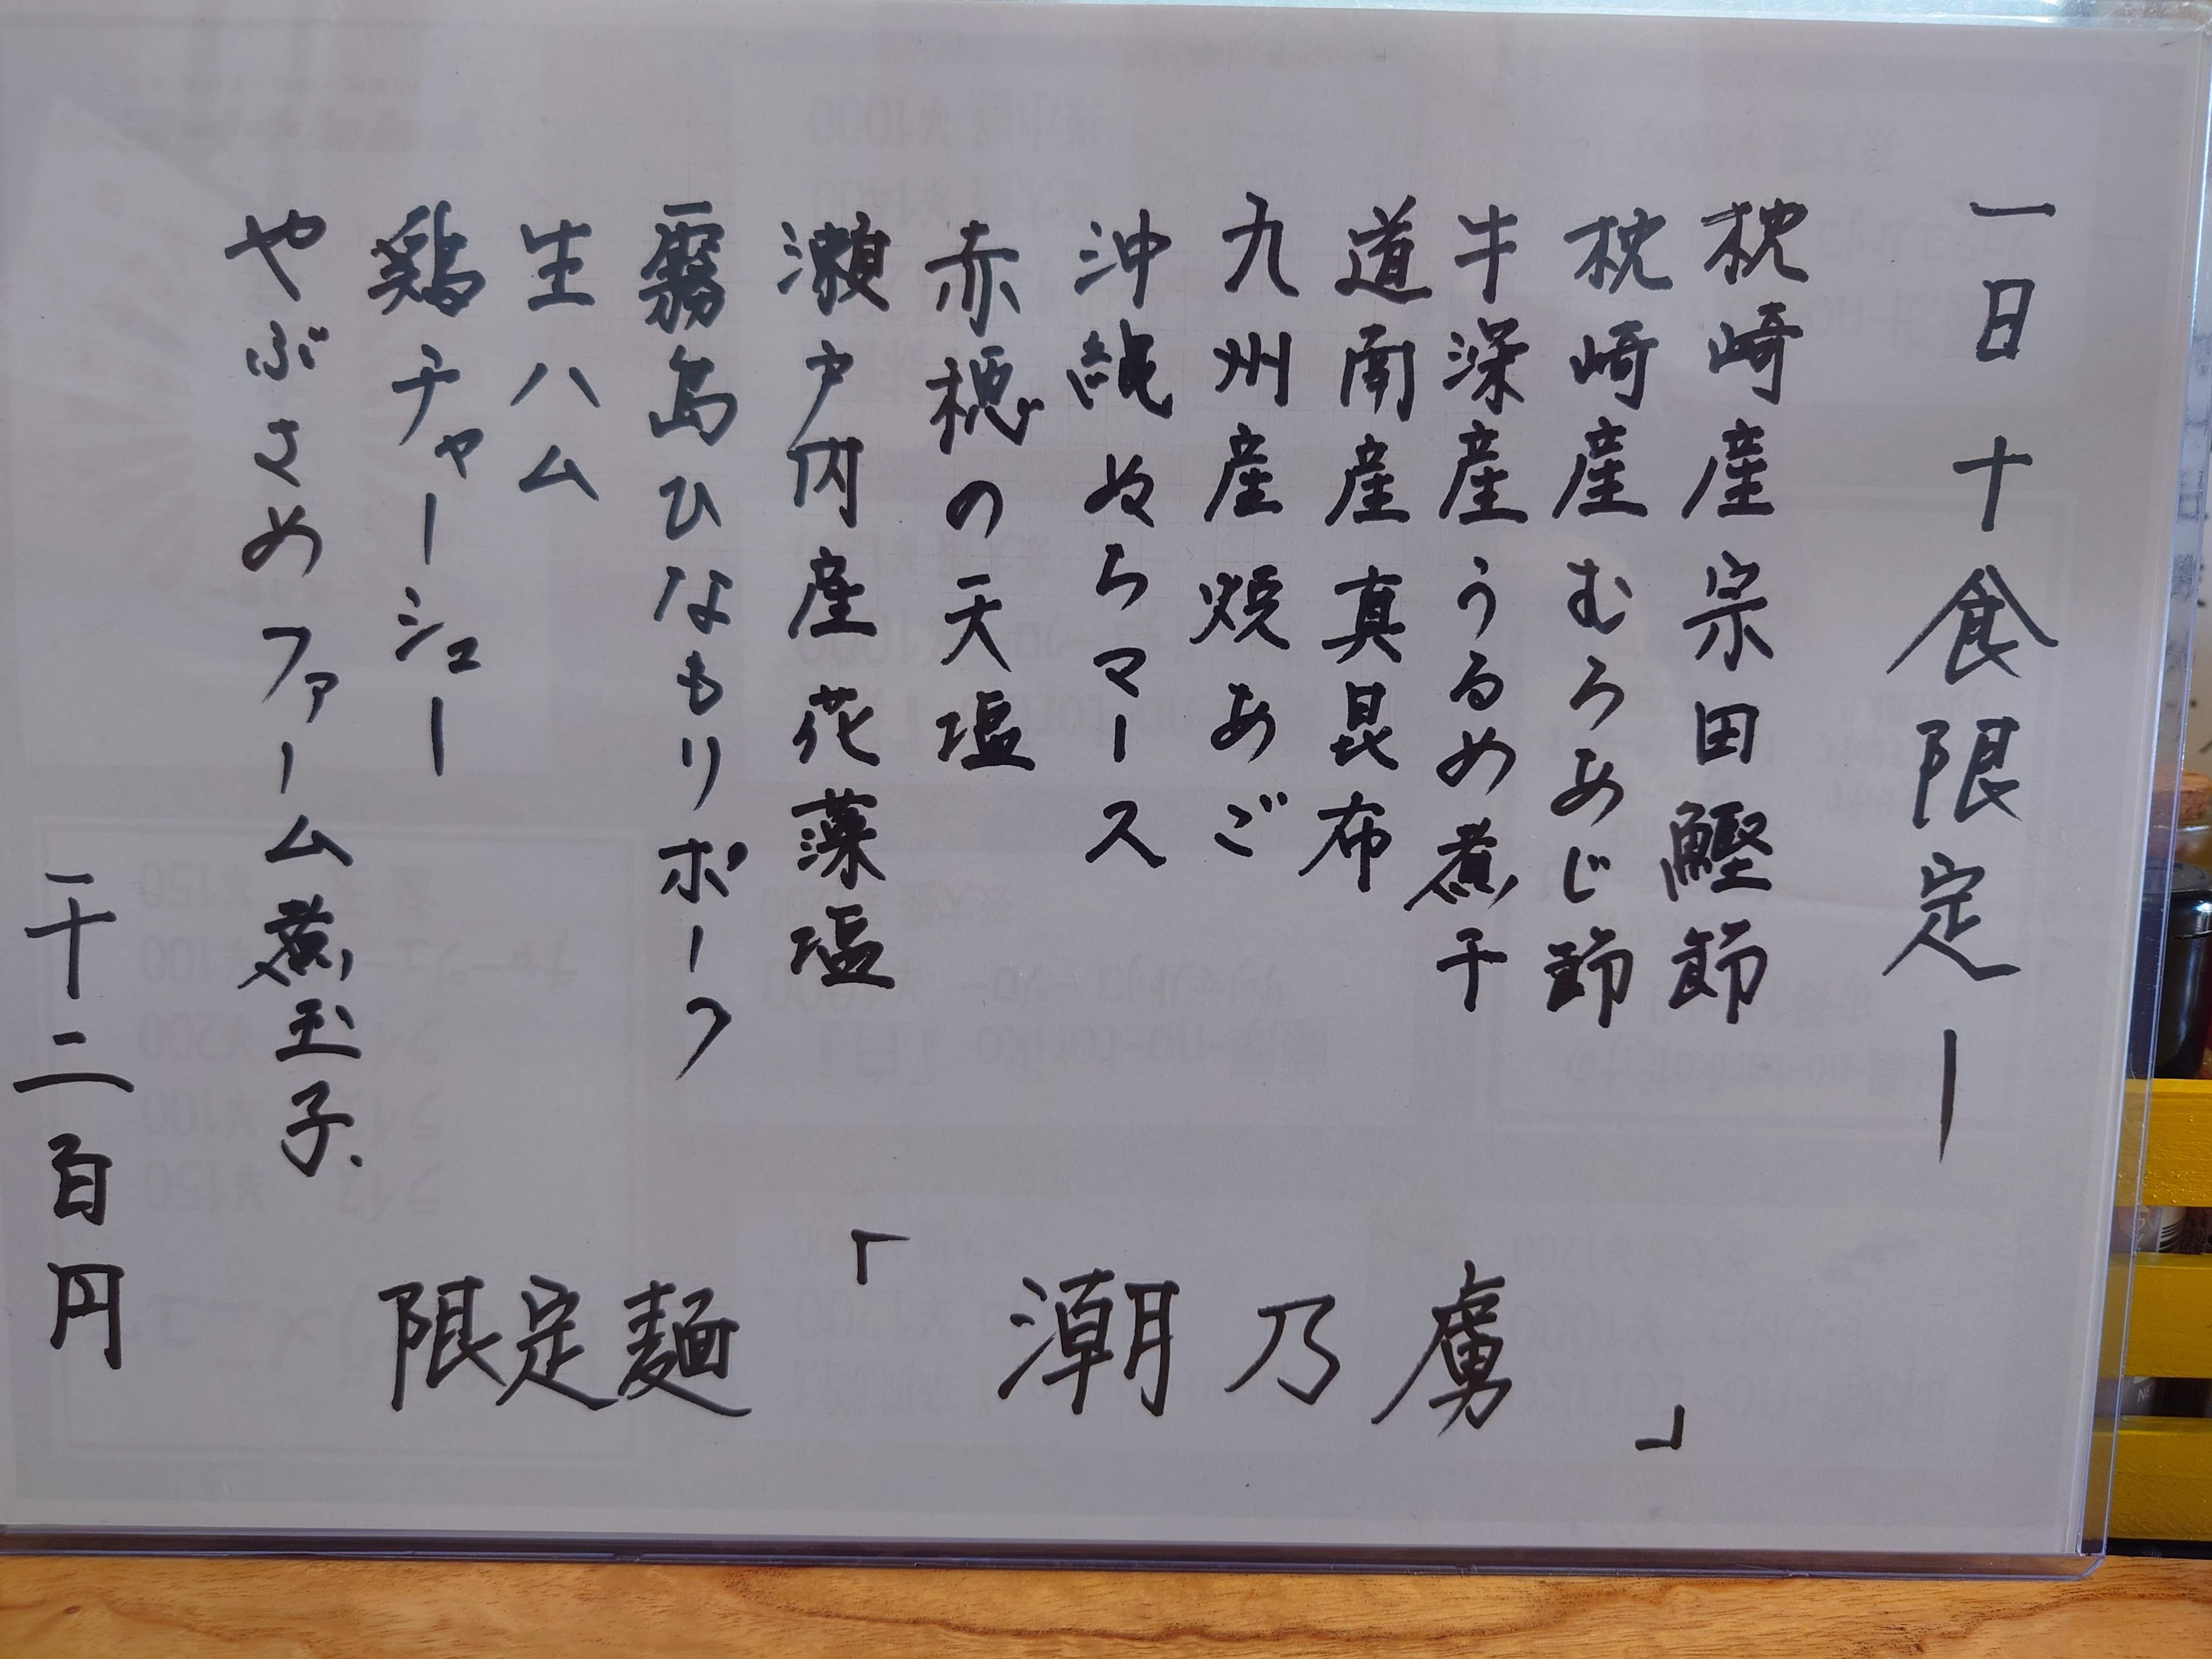 一日十食限定ー
枕崎産宗田鰹節
枕崎産むろあじ節
牛深産うるめ煮干
道南産真昆布
九州産焼あご
沖縄ぬちマース
赤穂の天塩
瀬戸内産花藻塩
霧島ひなもりポーク
生ハム
鶏チャーシュー
やぶさめファーム煮玉子.
千二百円
限定麺「潮乃虜」